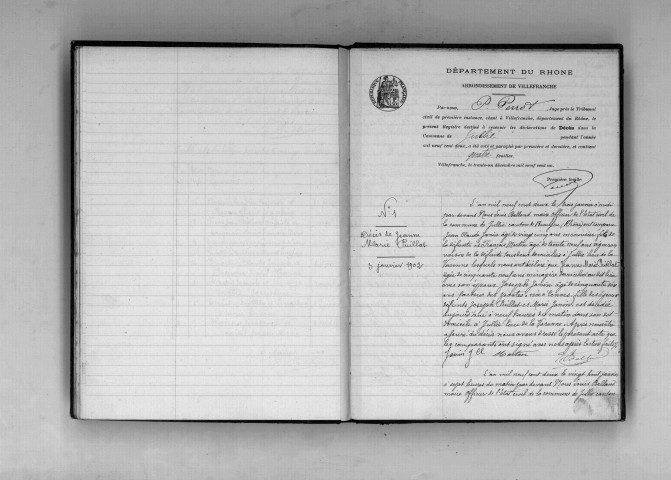 DÉPARTEMENT DU RHONE
ARRONDISSEMENT DE VILLEFRANCHE
Par nous, P. Perrot, Juge près le Tribunal
civil de première instance, séant à Villefranche, département du Rhône, le
présent Registre destiné à recevoir les déclarations de Décès dans la
Commune de Jullié pendant l'année
mil neuf cent deux, a été coté et paraphé par première et dernière, et contient
quatre feuilles.
Villefranche, le trente-un décembre mil neuf cent un.
Première feuille
N° 1
Décès de Jeanne
Marie Puillat
3 janvier 1902
L'an mil neuf cent deux le trois janvier à midi
par devant Nous Louis maire officier de l'état civil de
la commune de Jullié canton de Beaujeu (Rhône) ont comparu
Jean Claude Janin âgé de vingt cinq ans menuisier fils de
la défunte et François Martin âgé de trente neuf ans vigneron
voisin de la défunte tous deux domiciliés à Jullié lieu de la
lesquels nous ont déclaré que Jeanne Marie Puillat
âgée de cinquante neuf ans ménagère domiciliée au dit lieu
son époux Joseph Janin âgé de cinquante
ans facteur des postes fille des époux
défunts Joseph Puillat et Marie Janin, est décédée
aujourd'hui à neuf heures du matin dans son dit
domicile à Jullié lieu de la Après
du décès nous avons dressé le présent acte que
les comparants ont signé avec nous après lecture faite
Janin J Cl Martin
L'an mil neuf cent deux le vingt huit janvier
à sept heures du matin par devant Nous Louis
maire officier de l'état civil de la commune de Jullié canton